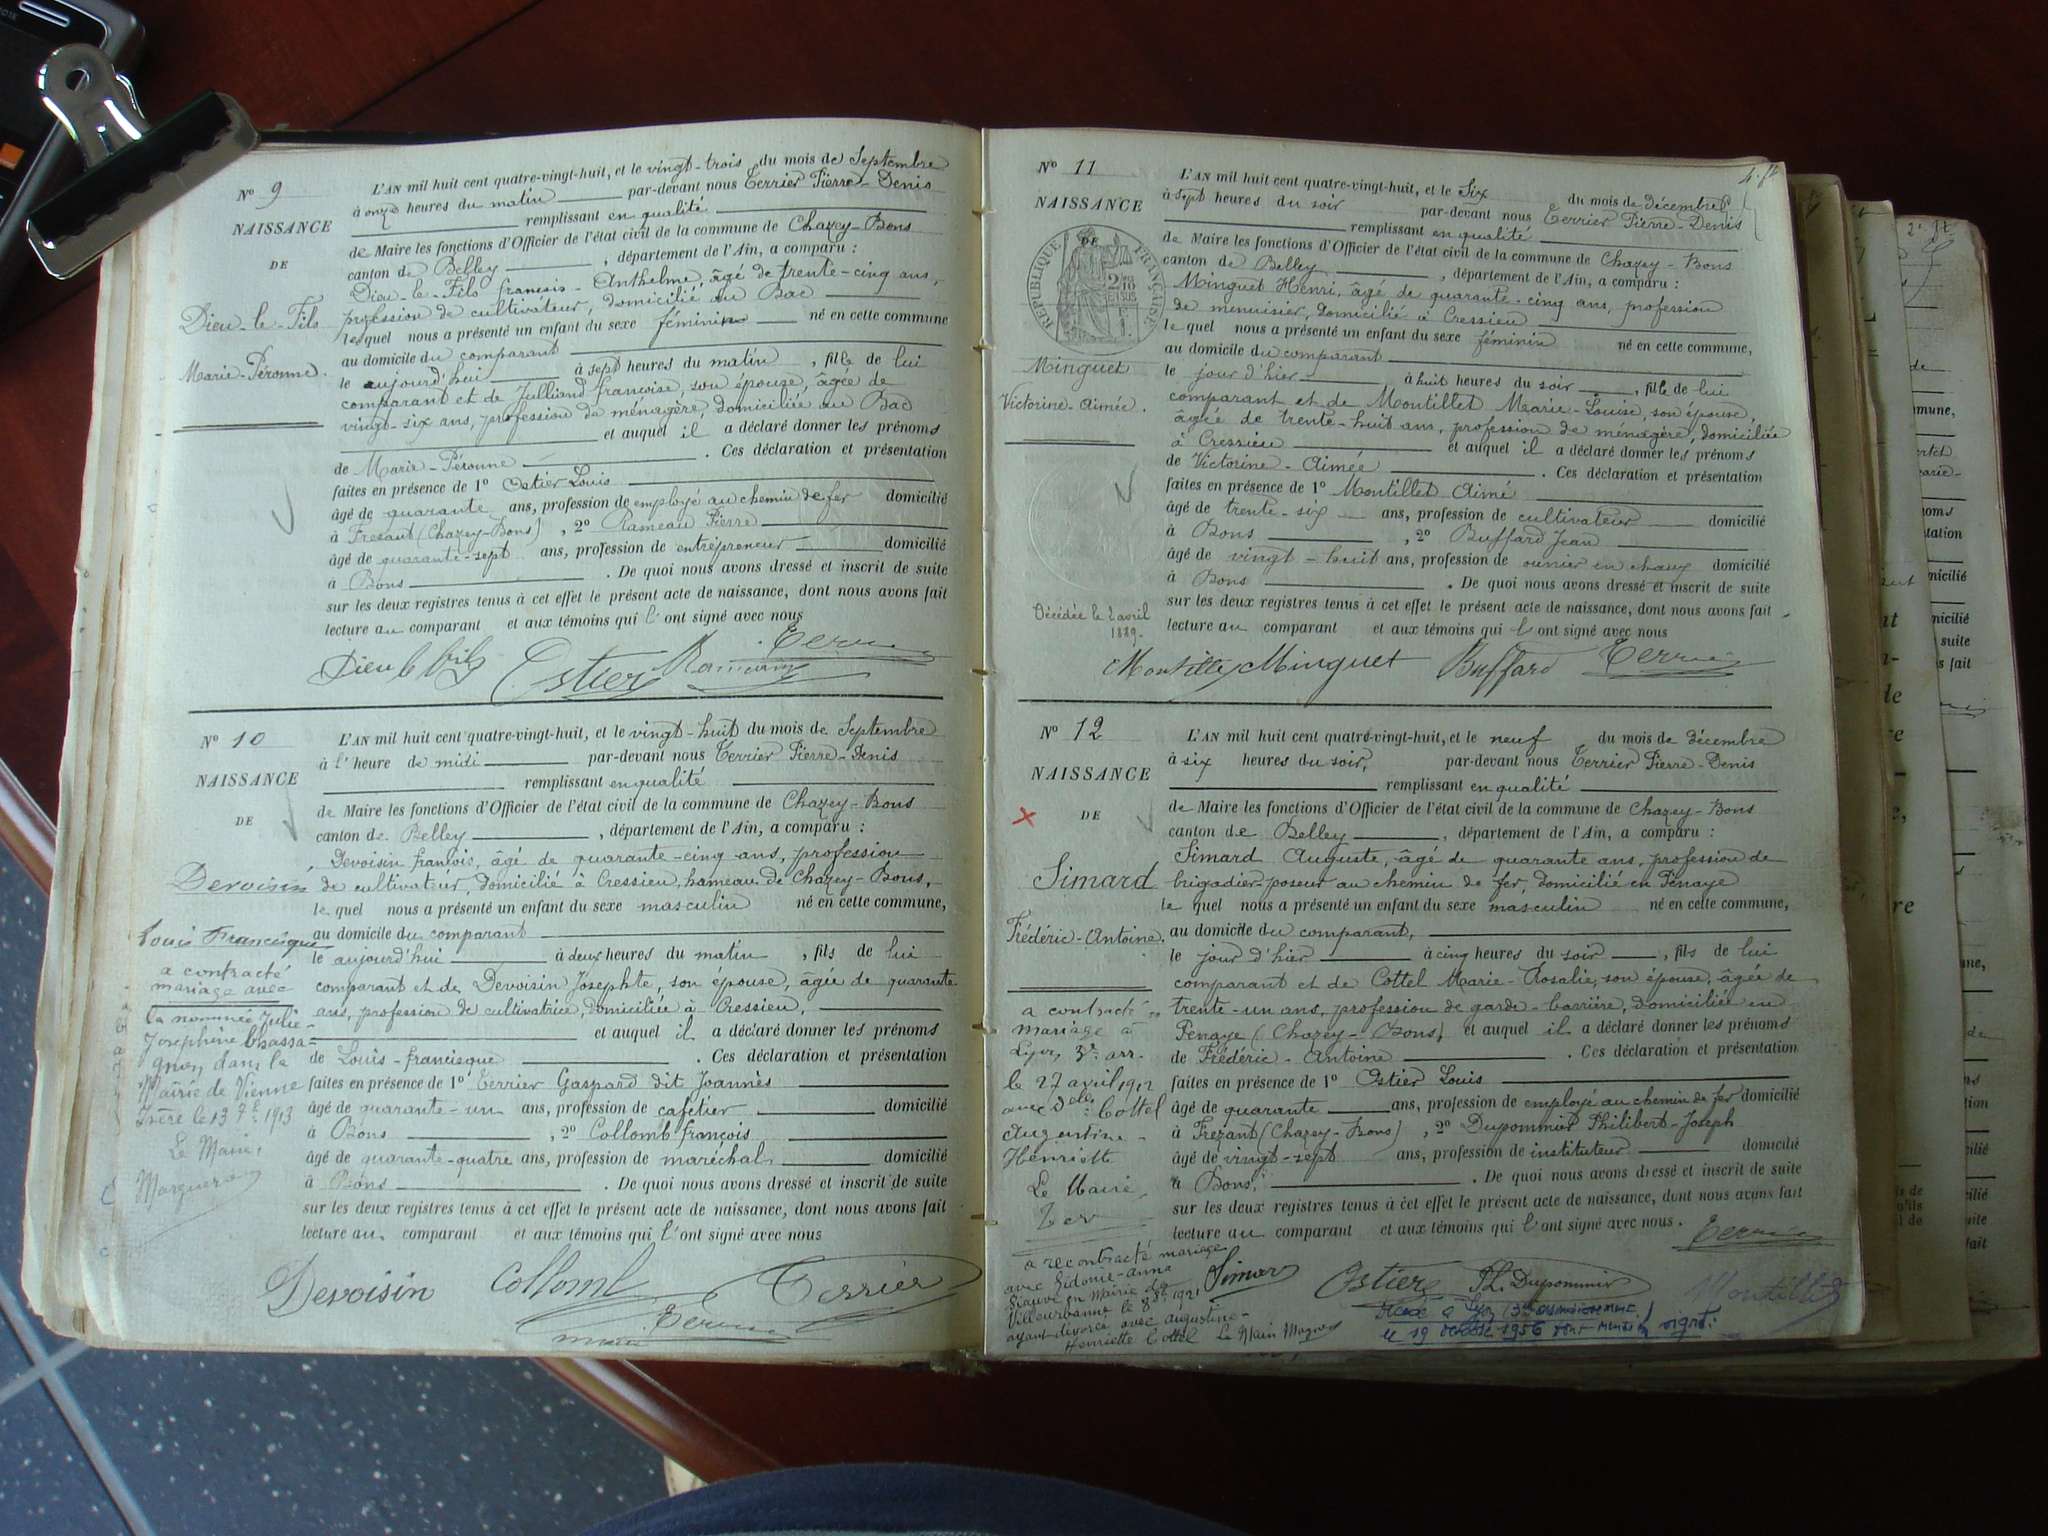 N° 9
NAISSANCE
DE
Dieu-le-Fils
Marie-Péronne.
L'AN mil huit cent quatre-vingt-huit, et le vingt-trois du mois de Septembre
à onze heures du matin par-devant nous Terrier Pierre-Denis
remplissant en qualité
de Maire les fonctions d'Officier de l'état civil de la commune de Chazey-Bons
canton de Belley, département de l'Ain, a comparu :
Dieu-le-Fils françois-Anthelme, âgé de trente-cinq ans,
profession de cultivateur, domicilié au Bac
lequel nous a présenté un enfant du sexe féminin né en cette commune
au domicile du comparant
le aujourd'hui à sept heures du matin, fille de lui
comparant et de Julliand françoise, son épouse, âgée de
vingt-six ans, profession de ménagère, domiciliée au Bac
et auquel il a déclaré donner les prénoms
de Marie-Péronne. Ces déclaration et présentation
faites en présence de 1° Ostier Louis
âgé de quarante ans, profession de employé au chemin de fer domicilié
à Frezant (Chazey-Bons), 2° Rameau Pierre
âgé de quarante-sept ans, profession de entrepreneur domicilié
à Bons. De quoi nous avons dressé et inscrit de suite
sur les deux registres tenus à cet effet le présent acte de naissance, dont nous avons fait
lecture au comparant et aux témoins qui l'ont signé avec nous
Dieu le fils Ostier Rameau Terrier
N° 10
NAISSANCE
DE
Devoisin
Louis Francisque
a contracté
mariage avec
la nommée Julie-
Josephine Chassa-
gnon dans la
Mairie de Vienne
Isère le 13 7bre 1913
Le Maire,
L'AN mil huit cent quatre-vingt-huit, et le vingt-huit du mois de Septembre
à l'heure de midi par-devant nous Terrier Pierre-Denis
remplissant en qualité
de Maire les fonctions d'Officier de l'état civil de la commune de Chazey-Bons
canton de Belley, département de l'Ain, a comparu :
Devoisin françois, âgé de quarante-cinq ans, profession
de cultivateur, domicilié à Cressieu, hameau de Chazey-Bons,
le quel nous a présenté un enfant du sexe masculin né en cette commune,
au domicile du comparant
le aujourd'hui à deux heures du matin, fils de lui
comparant et de Devoisin Josephte, son épouse, âgée de quarante
ans, profession de cultivatrice, domiciliée à Cressieu,
et auquel il a déclaré donner les prénoms
de Louis-francisque. Ces déclaration et présentation
faites en présence de 1° Terrier Gaspard dit Joannès
âgé de quarante-un ans, profession de cafetier domicilié
à Bons, 2° Collomb françois
âgé de quarante-quatre ans, profession de maréchal domicilié
à Bons. De quoi nous avons dressé et inscrit de suite
sur les deux registres tenus à cet effet le présent acte de naissance, dont nous avons fait
lecture au comparant et aux témoins qui l'ont signé avec nous
Devoisin Collomb Terrier
Terrier
maire
N° 11
NAISSANCE
DE
RÉPUBLIQUE FRANÇAISE
Minguet
Victorine-Aimée.
Décédée le 2 avril
1889.
L'AN mil huit cent quatre-vingt-huit, et le Six du mois de décembre
à sept heures du soir par-devant nous Terrier Pierre-Denis
remplissant en qualité
de Maire les fonctions d'Officier de l'état civil de la commune de Chazey-Bons
canton de Belley, département de l'Ain, a comparu :
Minguet Henri, âgé de quarante-cinq ans, profession
de menuisier, domicilié à Cressieu
le quel nous a présenté un enfant du sexe féminin né en cette commune,
au domicile du comparant
le jour d'hier à huit heures du soir, fille de lui
comparant et de Montillet Marie-Louise, son épouse,
âgée de trente-huit ans, profession de ménagère, domiciliée
à Cressieu et auquel il a déclaré donner les prénoms
de Victorine-Aimée. Ces déclaration et présentation
faites en présence de 1° Montillet Aimé
âgé de trente-six ans, profession de cultivateur domicilié
à Bons, 2° Buffard Jean
âgé de vingt-huit ans, profession de ouvrier en chaux domicilié
à Bons. De quoi nous avons dressé et inscrit de suite
sur les deux registres tenus à cet effet le présent acte de naissance, dont nous avons fait
lecture au comparant et aux témoins qui l'ont signé avec nous
Montillet Minguet Buffard Terrier
N° 12
NAISSANCE
DE
Simard
Frédéric-Antoine.
a contracté
mariage à
Lyon 3e arr.
le 27 avril 1912
avec Delle Cottel
Augustine-
Henriette
Le Maire,
L'AN mil huit cent quatre-vingt-huit, et le neuf du mois de décembre
à six heures du soir, par-devant nous Terrier Pierre-Denis
remplissant en qualité
de Maire les fonctions d'Officier de l'état civil de la commune de Chazey-Bons
canton de Belley, département de l'Ain, a comparu :
Simard Auguste, âgé de quarante ans, profession de
brigadier-poseur au chemin de fer, domicilié en Penaye
le quel nous a présenté un enfant du sexe masculin né en cette commune,
au domicile du comparant,
le jour d'hier à cinq heures du soir, fils de lui
comparant et de Cottel Marie-Rosalie, son épouse, âgée de
trente-un ans, profession de garde-barrière, domiciliée en
Penaye (Chazey-Bons) et auquel il a déclaré donner les prénoms
de Frédéric-Antoine. Ces déclaration et présentation
faites en présence de 1° Ostier Louis
âgé de quarante ans, profession de employé au chemin de fer domicilié
à Frezant (Chazey-Bons), 2° Dupommier Philibert-Joseph
âgé de vingt-sept ans, profession de instituteur domicilié
à Bons. De quoi nous avons dressé et inscrit de suite
sur les deux registres tenus à cet effet le présent acte de naissance, dont nous avons fait
lecture au comparant et aux témoins qui l'ont signé avec nous.
Terrier
Simard Ostier Ph. Dupommier
a recontracté mariage
avec Sidonie-Anna
en Mairie de
Villeurbanne le 1921
ayant divorcé avec Augustine-
Henriette Cottel Le Maire
Décédé à Lyon (3e arrondissement)
le 19 octobre 1956